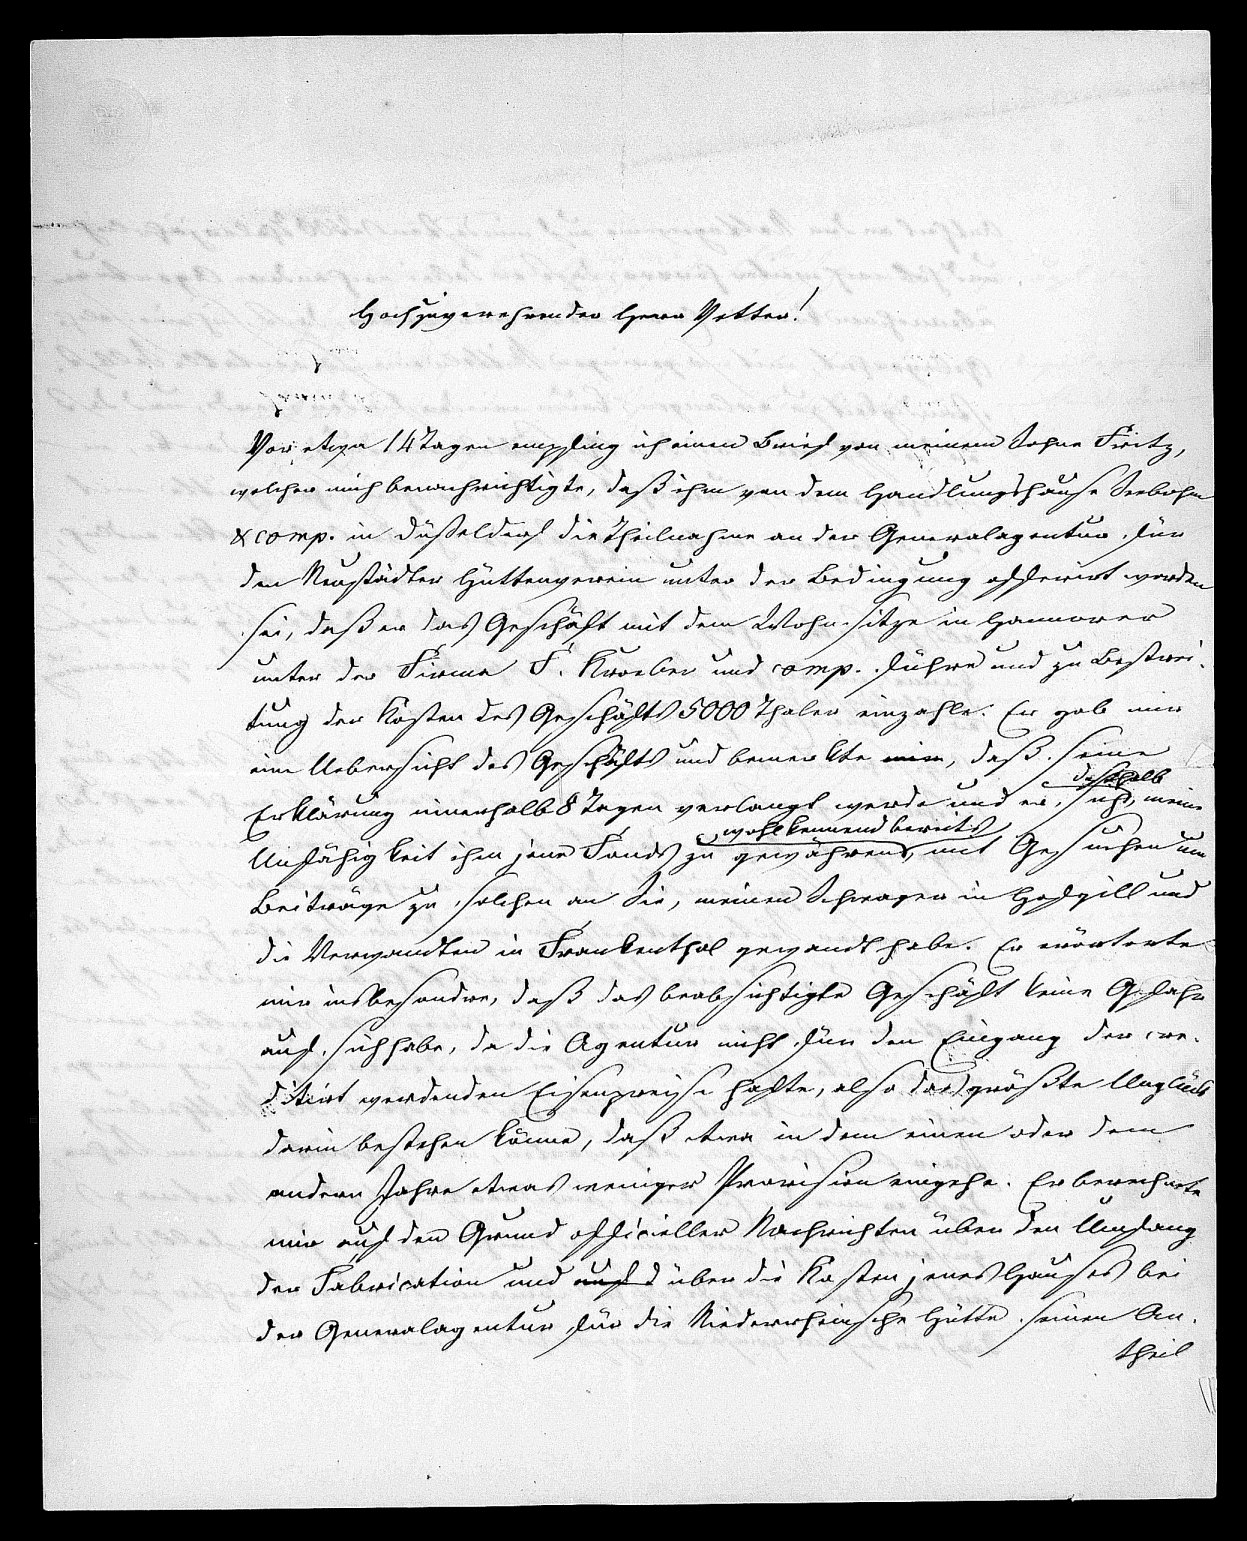 Hochzuverehrender Herr Vetter!
Vor etwa 14 Tagen empfing ich einen Brief von meinem Sohne Fritz,
welcher mich benachrichtigte, daß ihm von dem Handlungshause Seebohm
& comp. in Düsseldorf die Theilnahme an der Generalagentur für
den Neustädter Hüttenverein unter der Bedingung offerirt worden
sei, daß er das Geschäft mit dem Wohnsitze in Hannover
unter der Firma F. Kroeber und comp. führe und zu Bestrei-
tung der Kosten des Geschäfts 5000 Thaler einzahle. Er gab mir
eine Uebersicht des Geschäfts und bemerkte mir, daß seine
Erklärung innerhalb 8 Tagen verlangt werde und er, sich deshalb, meine
Unfähigkeit ihm jene Fonds zu gewähren wohl kennend bereits, mit Gesuchen um
Beiträge zu solchen an Sie, meinen Schwager in und
die Verwandten in Frankenthal gewandt habe. Er erörterte
mir insbesondre, daß das beabsichtigte Geschäft keine Gefahr
auf sich habe, da die Agentur nicht für den Eingang der cre-
ditirt werdenden Eisenpreise hafte, also das größte Unglück
darin bestehen könne, daß etwa in dem einen oder dem
andern Jahre etwas weniger Provision eingehe. Er berechnete
mir auf den Grund officieller Nachrichten über den Umfang
der Fabrication und auf über die Kosten jenes Hauses bei
der Generalagentur für die Niederrheinsche Hütte seinen An-
theil